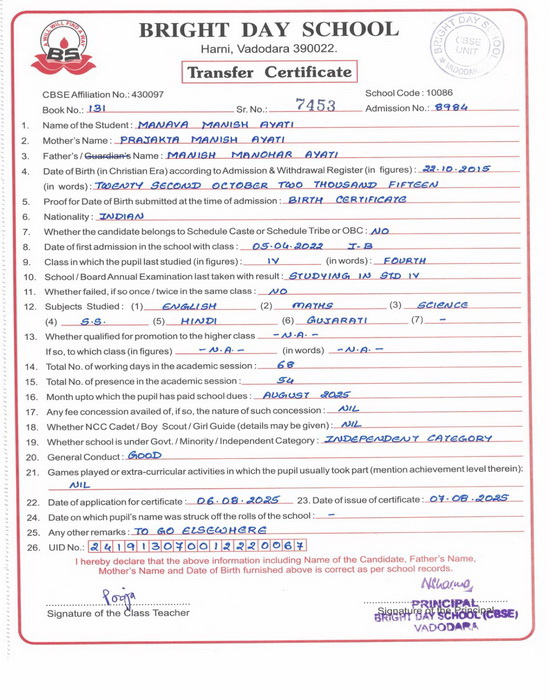 A WILL WILL FIND A WAY
BS
BRIGHT DAY SCHOOL
CBSE
UNIT
VADODARA
BRIGHT DAY SCHOOL
Harni, Vadodara 390022.
Transfer Certificate
CBSE Affiliation No.: 430097 School Code : 10086
Book No.: 131 Sr. No.: 7453 Admission No.: 8984
1. Name of the Student : MANAVA MANISH AYATI
2. Mother's Name : PRAJAKTA MANISH AYATI
3. Father's / Guardian's Name : MANISH MANOHAR AYATI
4. Date of Birth (in Christian Era) according to Admission & Withdrawal Register (in figures) : 22.10.2015
(in words) : TWENTY SECOND OCTOBER TWO THOUSAND FIFTEEN
5. Proof for Date of Birth submitted at the time of admission : BIRTH CERTIFICATE
6. Nationality : INDIAN
7. Whether the candidate belongs to Schedule Caste or Schedule Tribe or OBC : NO
8. Date of first admission in the school with class : 05.04.2022 I-B
9. Class in which the pupil last studied (in figures) : IV (in words) : FOURTH
10. School / Board Annual Examination last taken with result : STUDYING IN STD IV
11. Whether failed, if so once / twice in the same class : NO
12. Subjects Studied : (1) ENGLISH (2) MATHS (3) SCIENCE
(4) S.S. (5) HINDI (6) GUJARATI (7) -
13. Whether qualified for promotion to the higher class -N.A.-
If so, to which class (in figures) -N.A.- (in words) -N.A.-
14. Total No. of working days in the academic session : 68
15. Total No. of presence in the academic session : 54
16. Month upto which the pupil has paid school dues : AUGUST 2025
17. Any fee concession availed of, if so, the nature of such concession : NIL
18. Whether NCC Cadet / Boy Scout / Girl Guide (details may be given) : NIL
19. Whether school is under Govt. / Minority / Independent Category : INDEPENDENT CATEGORY
20. General Conduct : GOOD
21. Games played or extra-curricular activities in which the pupil usually took part (mention achievement level therein):
NIL
22. Date of application for certificate : 06.08.2025 23. Date of issue of certificate : 07.08.2025
24. Date on which pupil's name was struck off the rolls of the school : -
25. Any other remarks : TO GO ELSEWHERE
26. UID No.: 241913070012220067
I hereby declare that the above information including Name of the Candidate, Father's Name,
Mother's Name and Date of Birth furnished above is correct as per school records.
Pooja
Signature of the Class Teacher
Signature of the Principal
PRINCIPAL
BRIGHT DAY SCHOOL (CBSE)
VADODARA